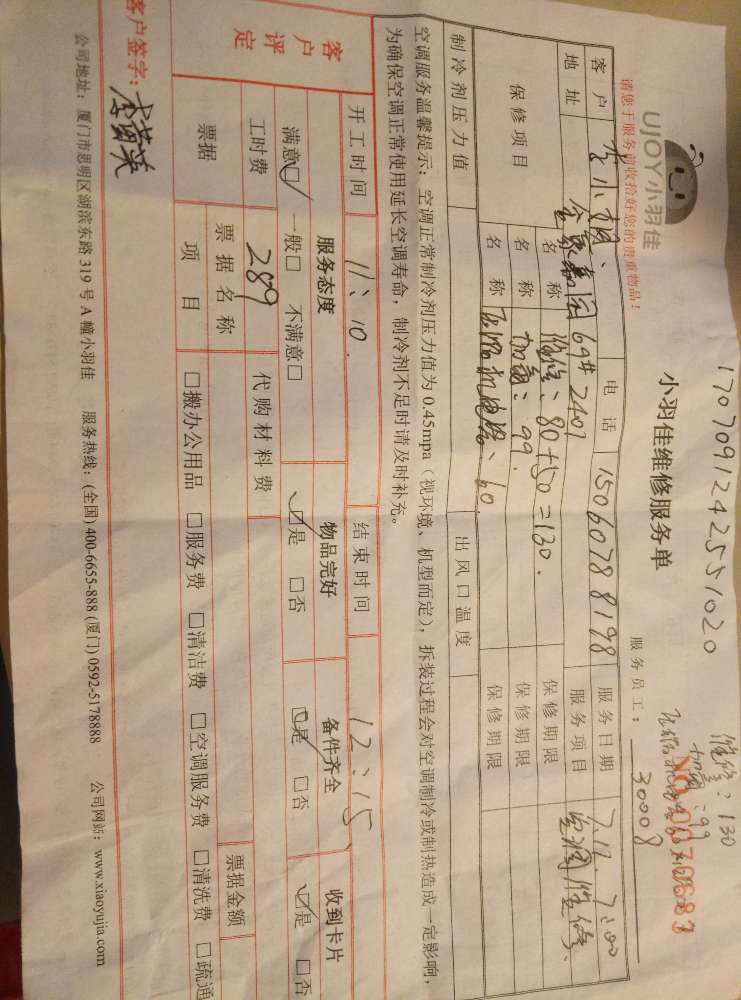 1707091242551020
维修：130
加氟：99
UJOY小羽佳
请您于服务前收拾好您的贵重物品！
小羽佳维修服务单
服务员工：
30008
客户
小姐、
电话
15060788198
服务日期
7.12. 7:00
地址
嘉园 69# 2401
服务项目
空调维修、
保修项目
名称
维修：80+50=130.
保修期限
名称
加氟：99.
保修期限
名称
压缩机电容：60.
保修期限
制冷剂压力值
出风口温度
空调服务温馨提示：空调正常制冷剂压力值为0.45mpa（视环境、机型而定），拆装过程会对空调制冷或制热造成一定影响，
为确保空调正常使用延长空调寿命，制冷剂不足时请及时补充。
客户评定
开工时间
11：10.
结束时间
12：15
服务态度
物品完好
备件齐全
收到卡片
满意□ 一般□ 不满意□
□是 □否
□是 □否
□是 □否
工时费
289
代购材料费
票据
票据名称
票据金额
项目
□搬办公用品 □服务费 □清洁费 □空调服务费 □清洗费 □疏通
客户签字：
公司地址：厦门市思明区湖滨东路319号A幢小羽佳 服务热线：(全国) 400-6655-888 (厦门) 0592-5178888 公司网站：www.xiaoyujia.com